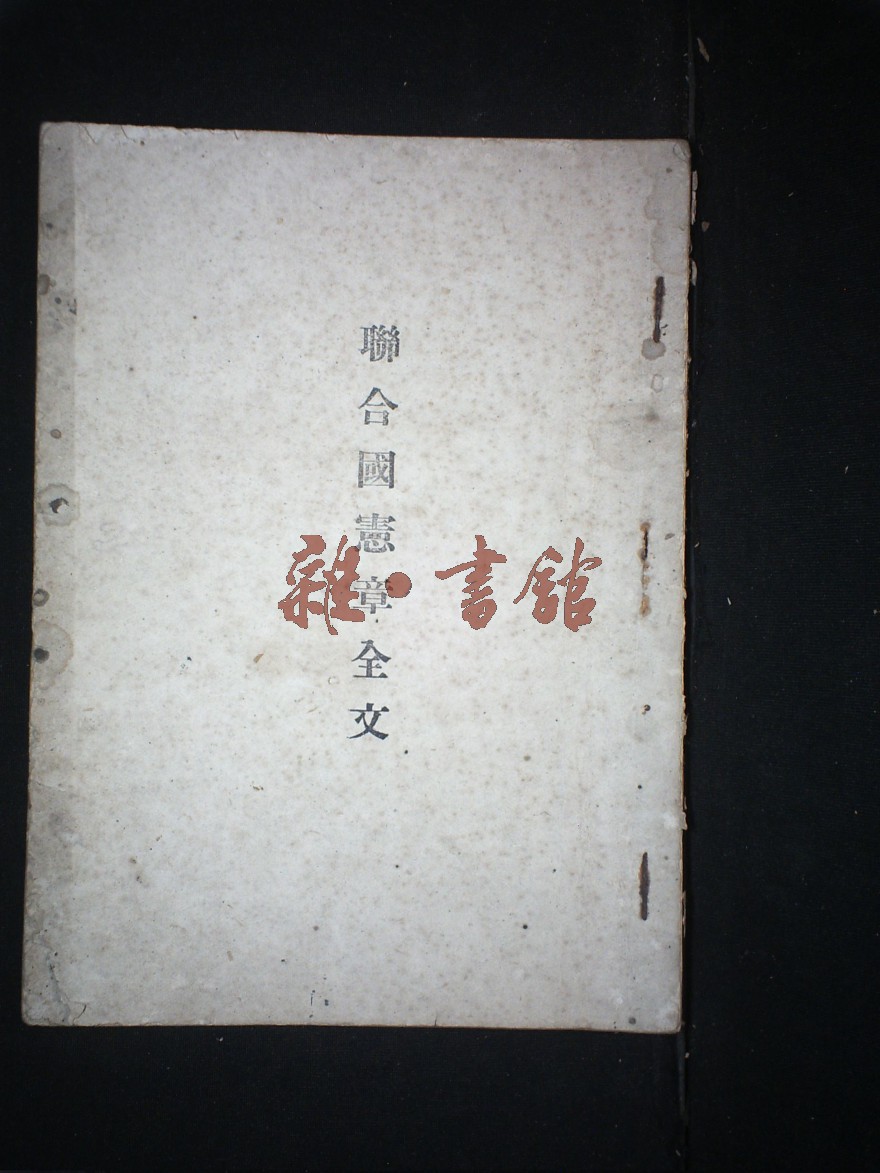 聯合國憲章全文
雜·書館